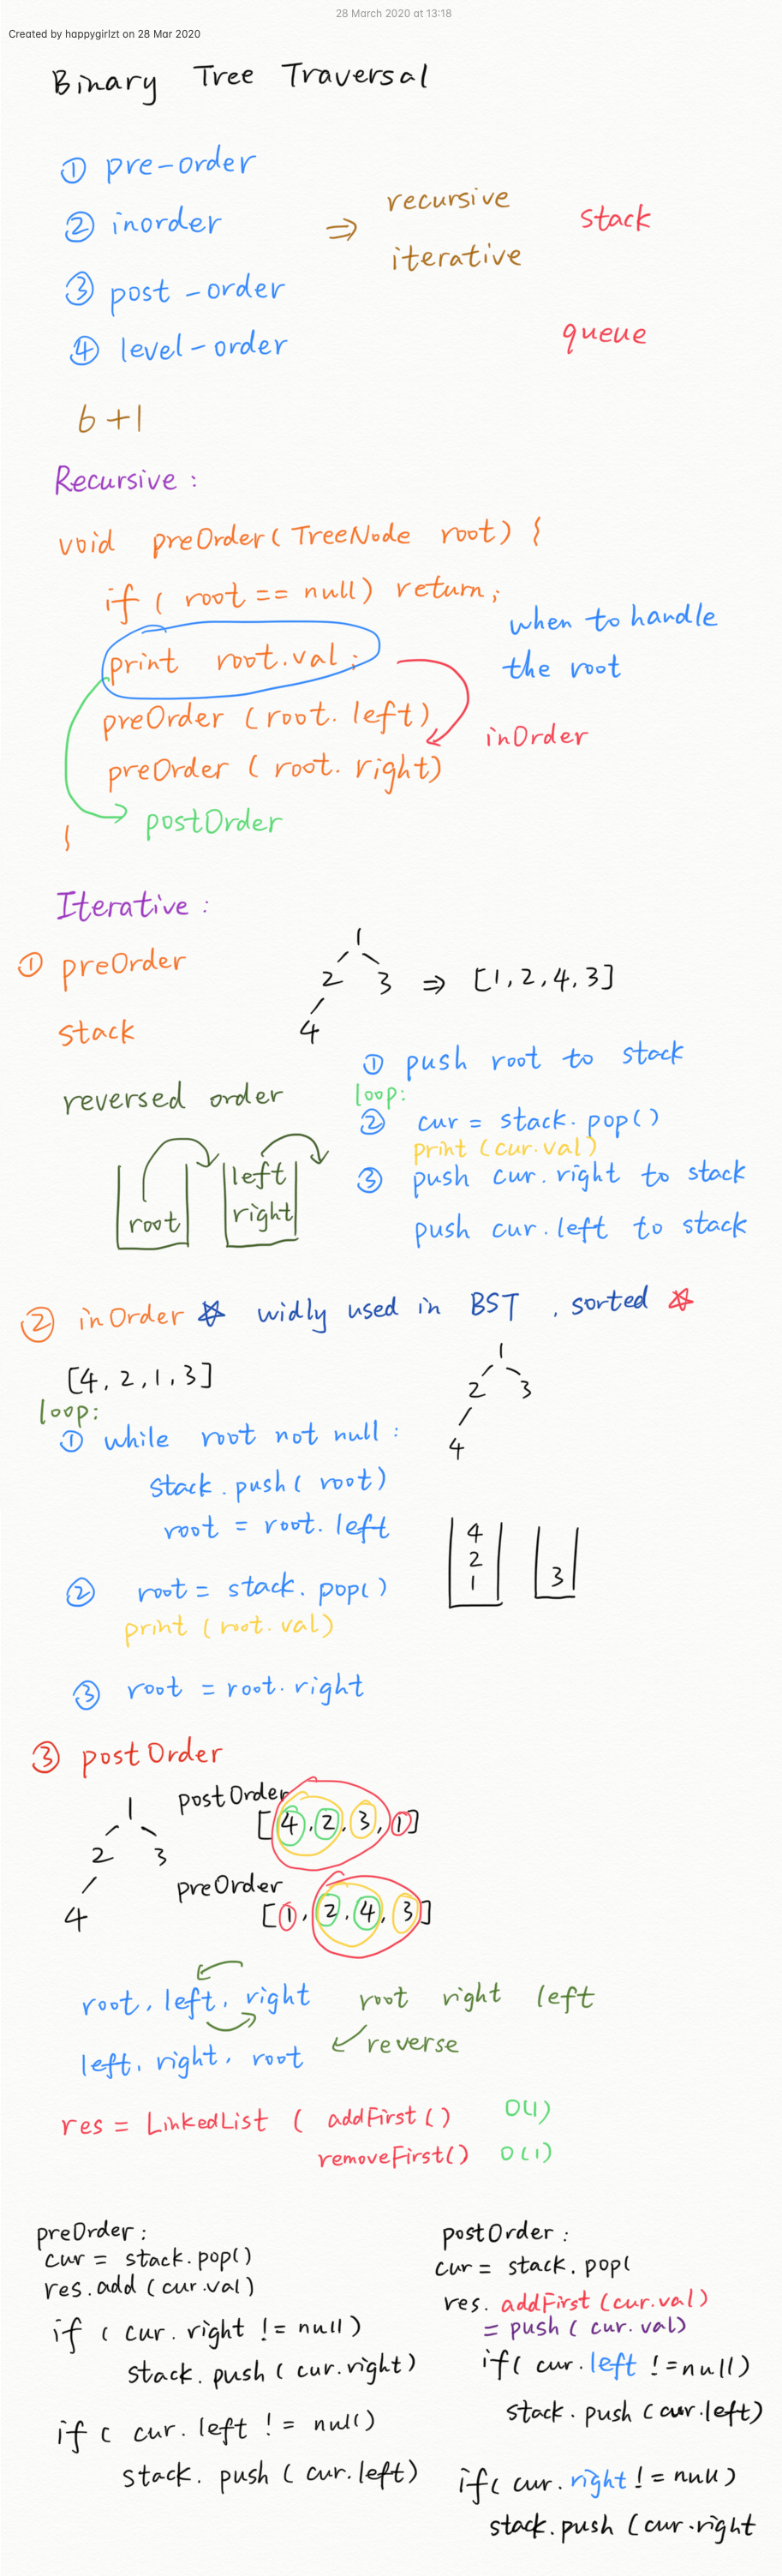 28 March 2020 at 13:18
Created by happygirlzt on 28 Mar 2020
Binary Tree Traversal
① pre-order
② inorder ⇒ recursive stack
iterative
③ post-order
④ level-order queue
6+1
Recursive:
void preOrder(TreeNode root) {
if (root == null) return;
print root.val;
when to handle
the root
preOrder (root.left)
inOrder
preOrder (root.right)
postOrder
}
Iterative:
① preOrder
1
2 3
4
⇒ [1,2,4,3]
stack
reversed order
root
left
right
① push root to stack
loop:
② cur = stack.pop()
print (cur.val)
③ push cur.right to stack
push cur.left to stack
② inOrder ☆ widly used in BST, sorted ☆
[4,2,1,3]
1
2 3
4
loop:
① while root not null:
stack.push(root)
root = root.left
4
2
1
3
② root = stack.pop()
print (root.val)
③ root = root.right
③ postOrder
1
2 3
4
postOrder
[4,2,3,1]
preOrder
[1,2,4,3]
root, left, right root right left
left, right, root reverse
res = LinkedList ( addFirst() O(1)
removeFirst() O(1)
preOrder:
cur = stack.pop()
res.add (cur.val)
if (cur.right != null)
stack.push (cur.right)
if (cur.left != null)
stack.push (cur.left)
postOrder:
cur = stack.pop(
res.addFirst (cur.val)
= push (cur.val)
if (cur.left != null)
stack.push (cur.left)
if (cur.right != null)
stack.push (cur.right